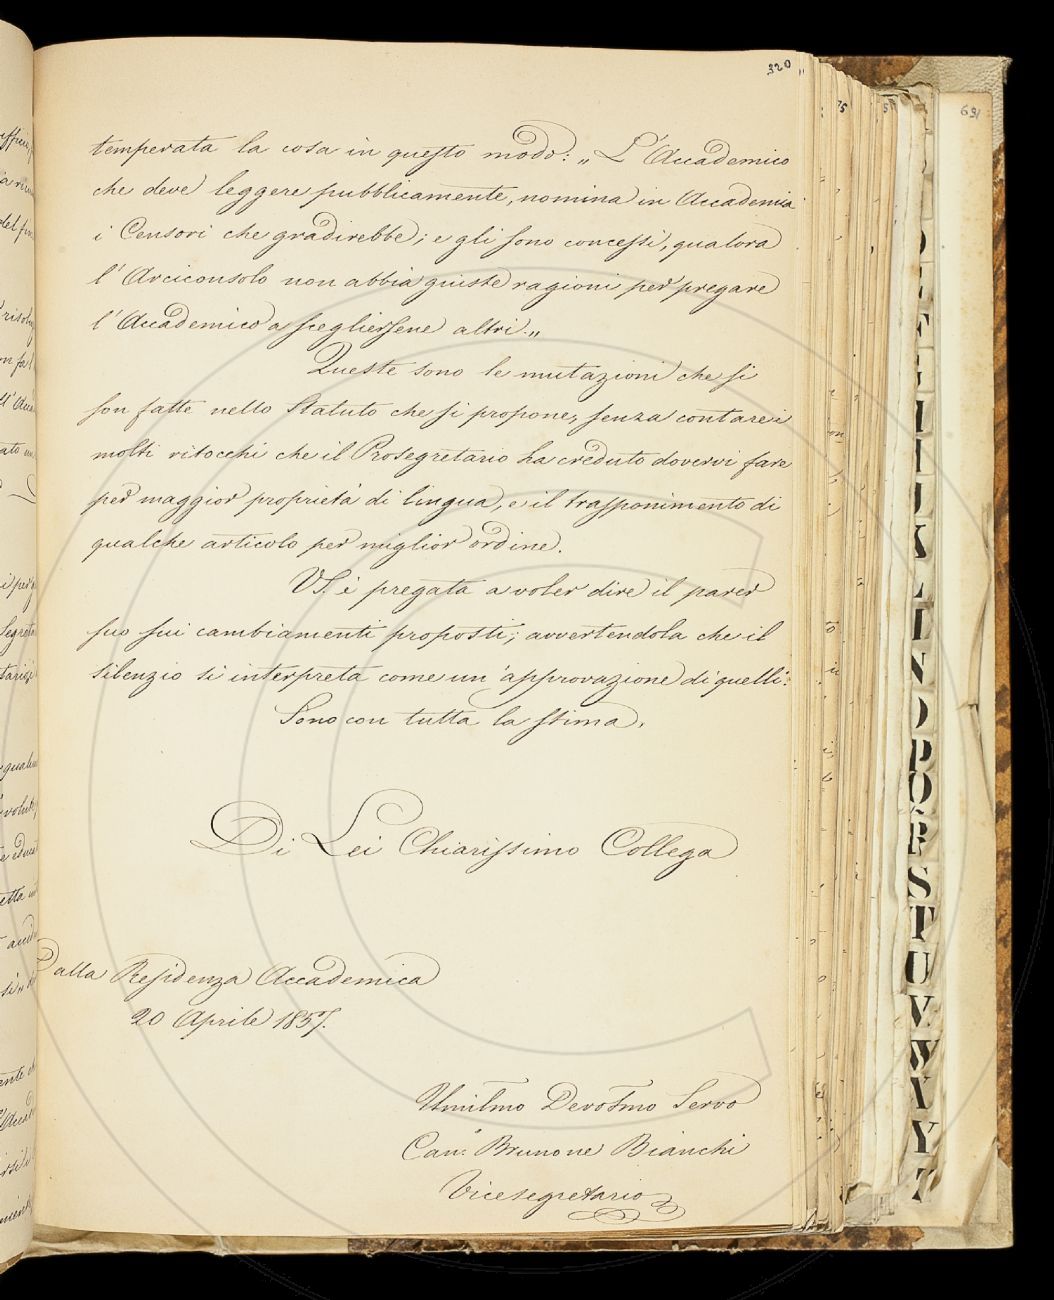 320
temperata la cosa in questo modo: „ L'Accademico
che deve leggere pubblicamente, nomina in Accademia
i Censori che gradirebbe; e gli sono concessi, qualora
l'Arciconsolo non abbia giuste ragioni per pregare
l'Accademico a sceglierSene altri. „
Queste sono le mutazioni che si
son fatte nello Statuto che si propone, senza contare i
molti ritocchi che il Prosegretario ha creduto dovervi fare
per maggior proprietà di lingua, e il trasponimento di
qualche articolo per miglior ordine.
VS. è pregata a voler dire il parer
suo sui cambiamenti proposti; avvertendola che il
silenzio si interpreta come un'approvazione di quelli.
Sono con tutta la stima.
Di Lei Chiarissimo Collega
Dalla Residenza Accademica
20 Aprile 1857.
Umilmo Devotmo Servo
Can.º Brunone Bianchi
Vicesegretario